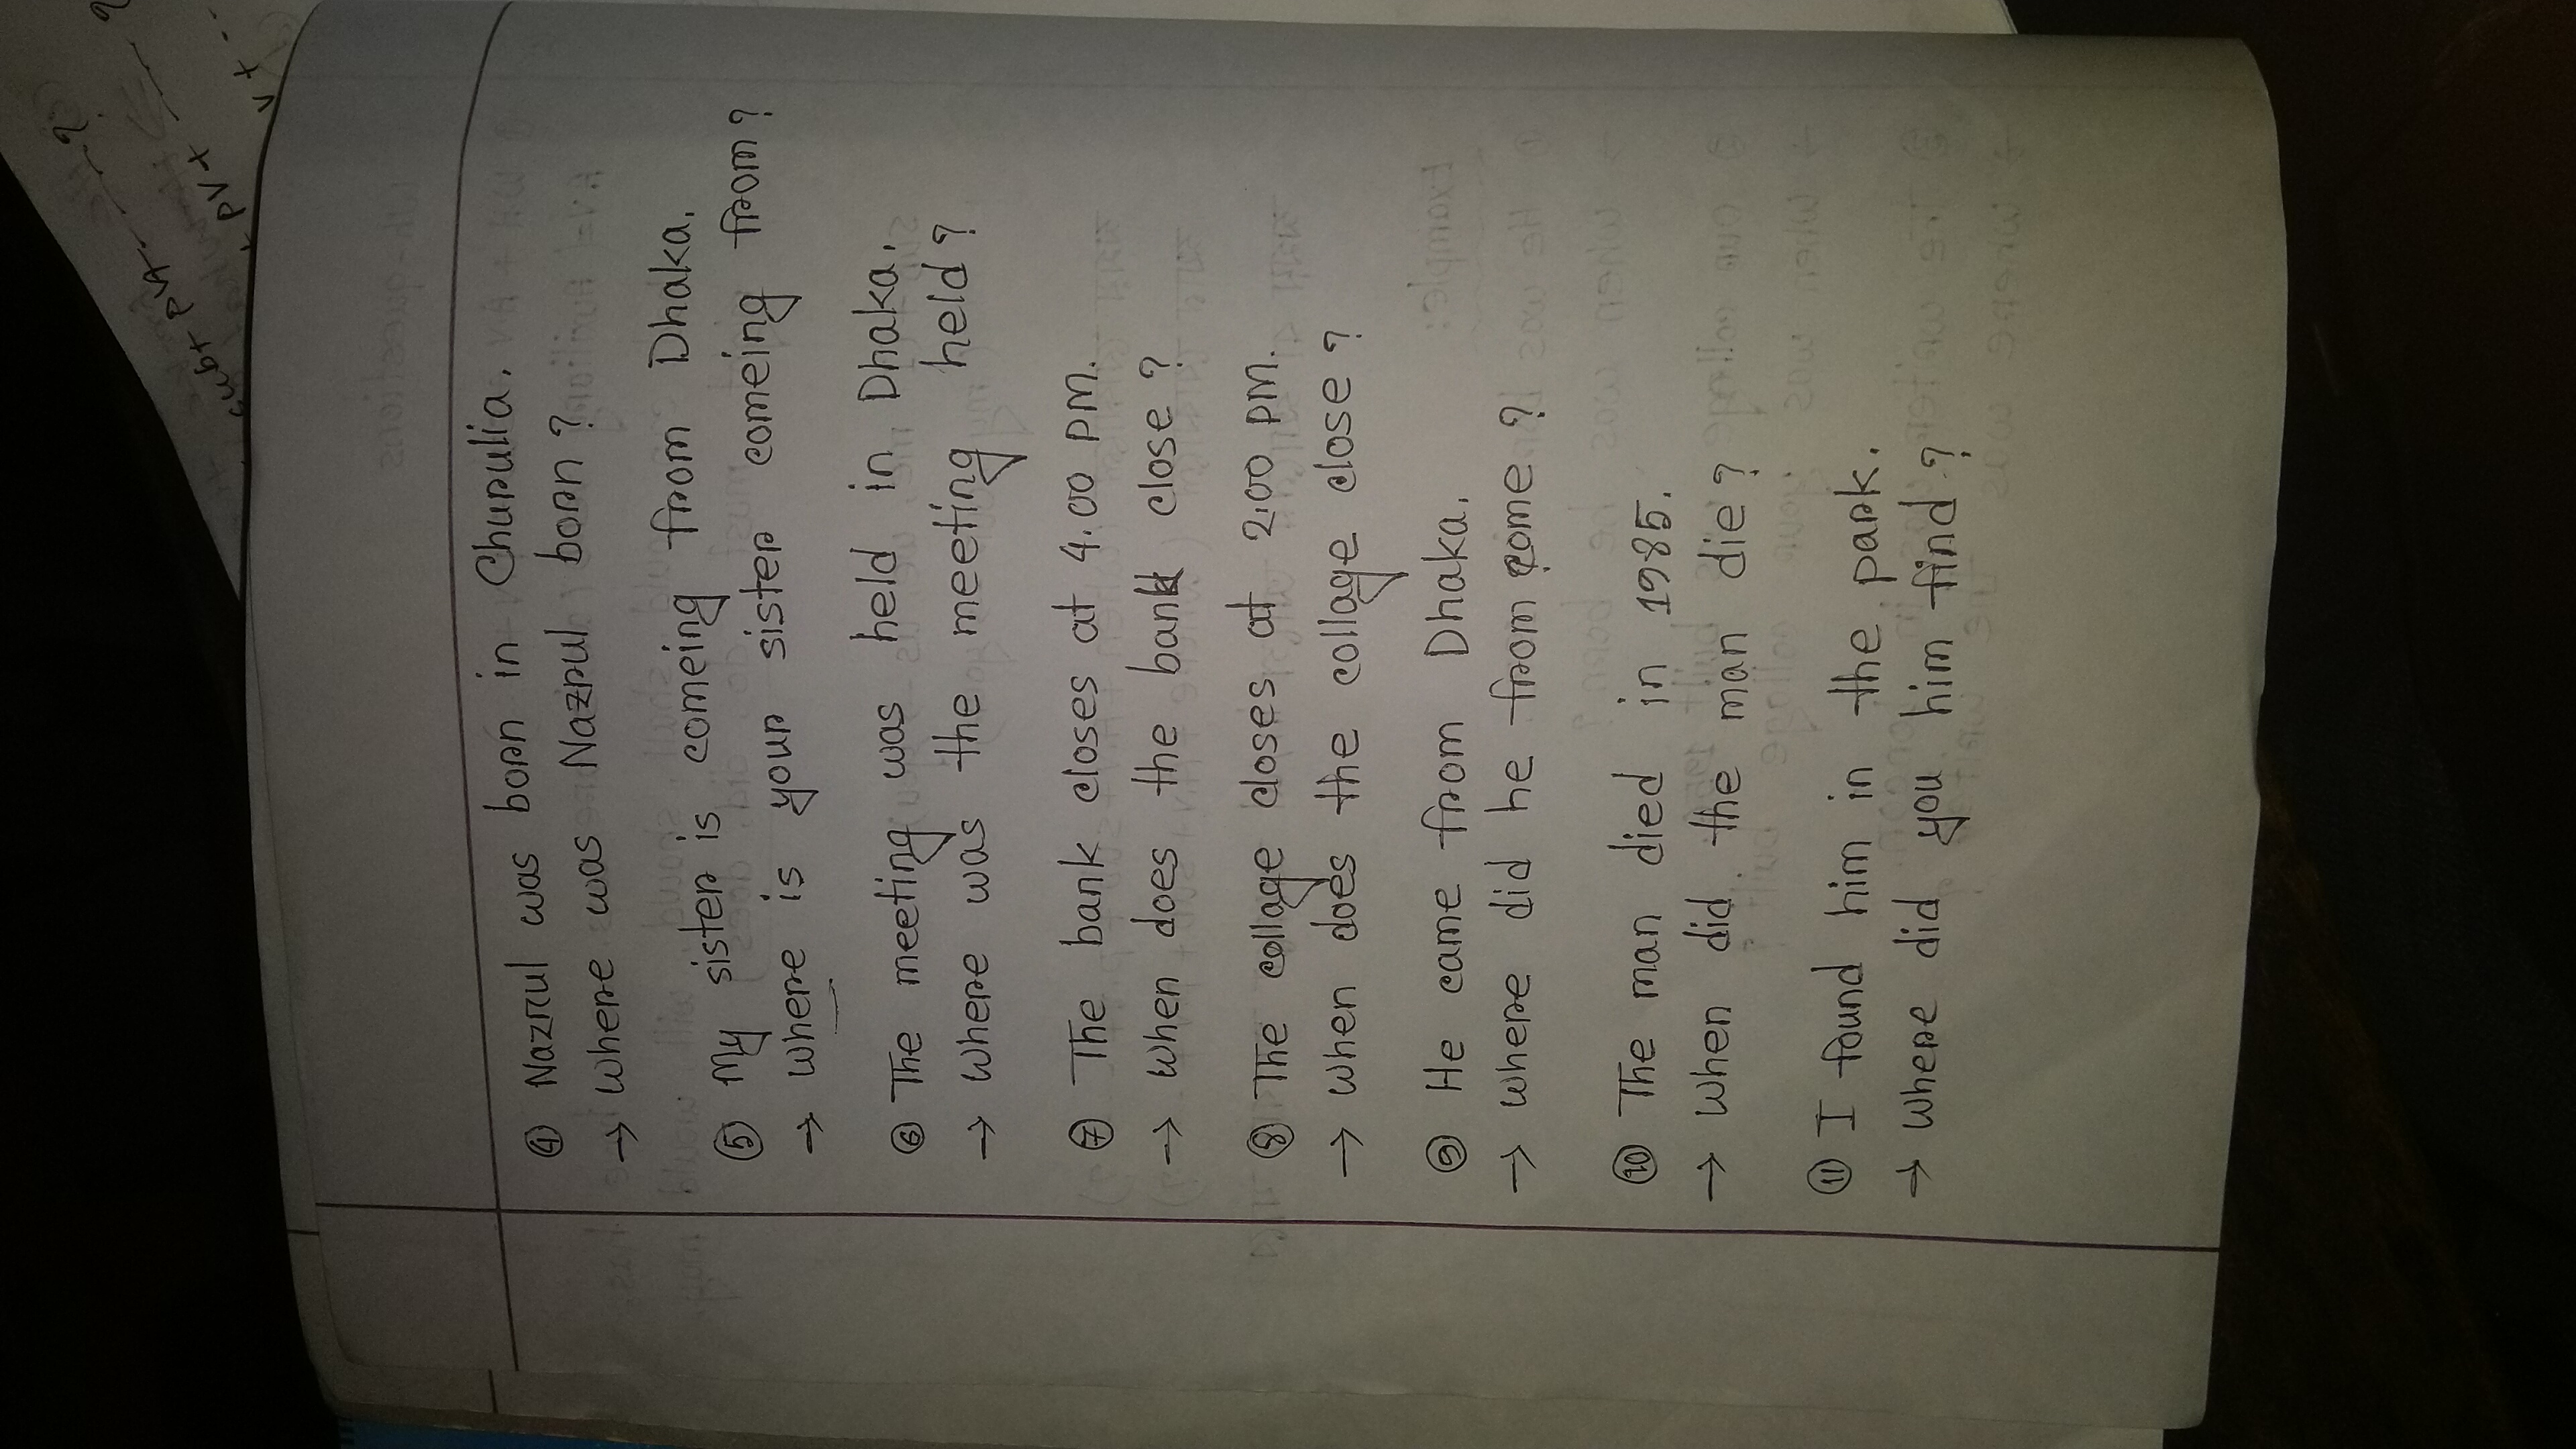 sub+ PV+ ?
+ PV+ ?
V +
④ Nazrul was born in Churulia.
→ Where was Nazrul born?
⑤ My sister is comeing from Dhaka.
→ Where is your sister comeing from?
⑥ The meeting was held in Dhaka.
→ Where was the meeting held?
⑦ The bank closes at 4.00 PM.
→ When does the bank close?
⑧ The collage closes at 2.00 PM.
→ When does the collage close?
⑨ He came from Dhaka.
→ Where did he from come?
⑩ The man died in 1985.
→ When did the man die?
⑪ I found him in the park.
→ Where did you him find?